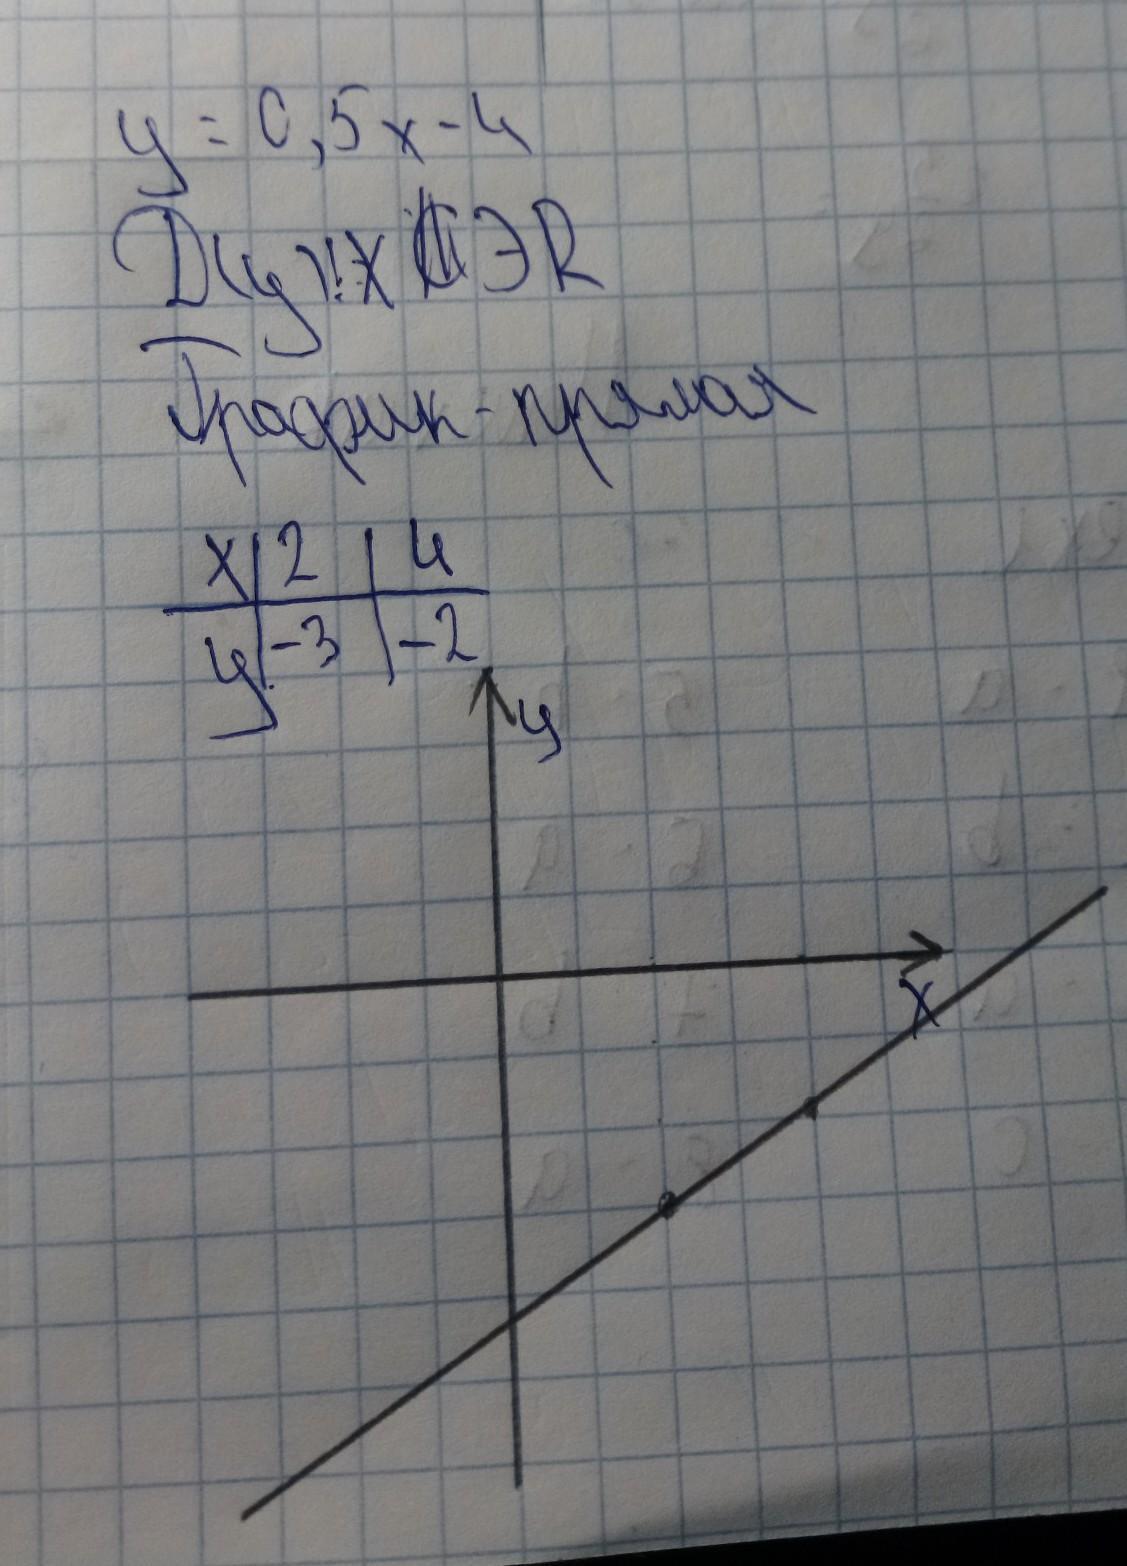 y = 0,5x-4
D(y): x ∋ R
График - прямая
x | 2 | 4
y | -3 | -2
y
x